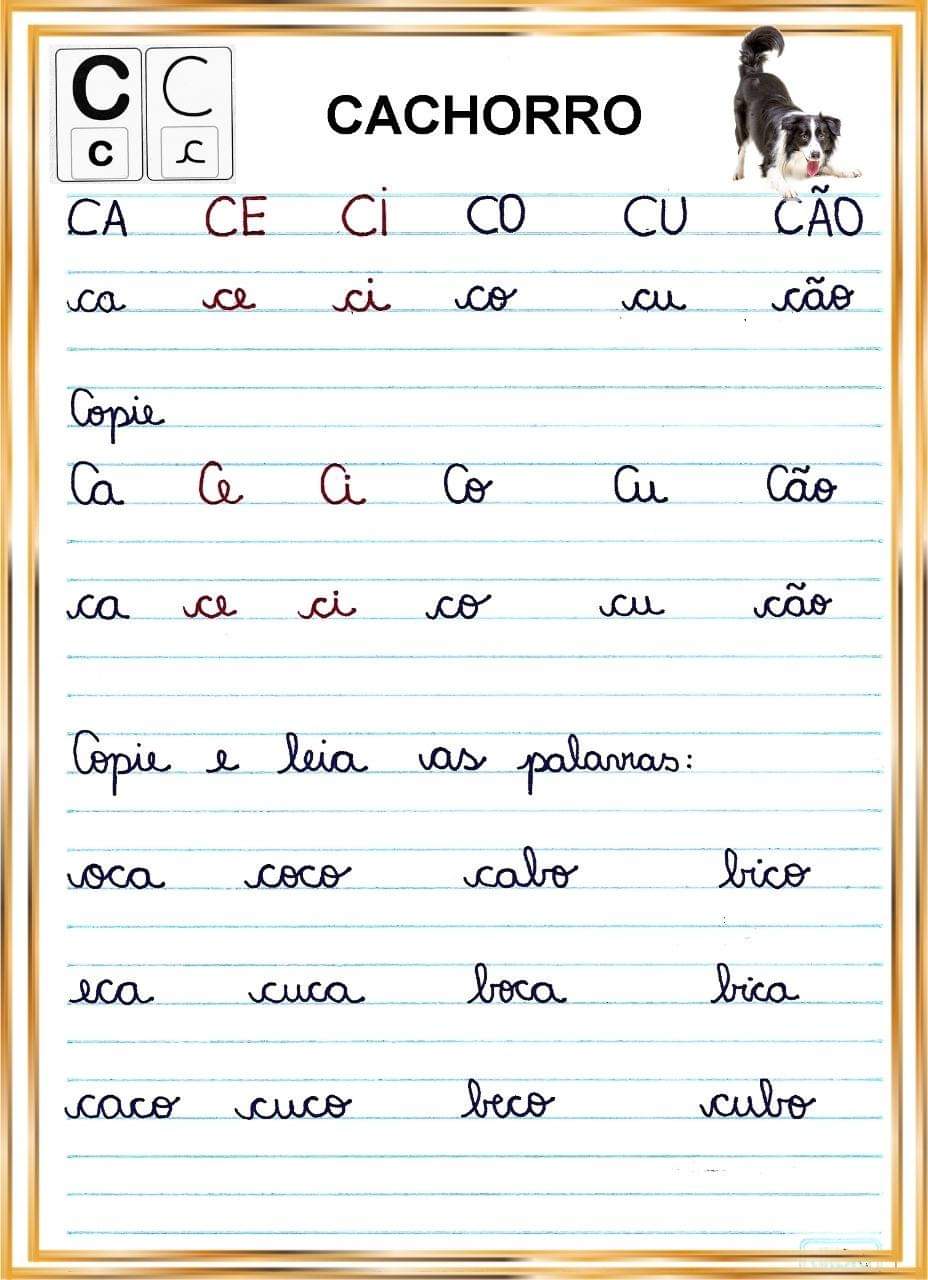 C C
CACHORRO
c c
CA CE CI CO CU CÃO
ca ce ci co cu cão
Copie
Ca Ce Ci Co Cu Cão
ca ce ci co cu cão
Copie e leia as palavras:
oca coco cabo bico
eca cuca boca bica
caco cuco beco cubo